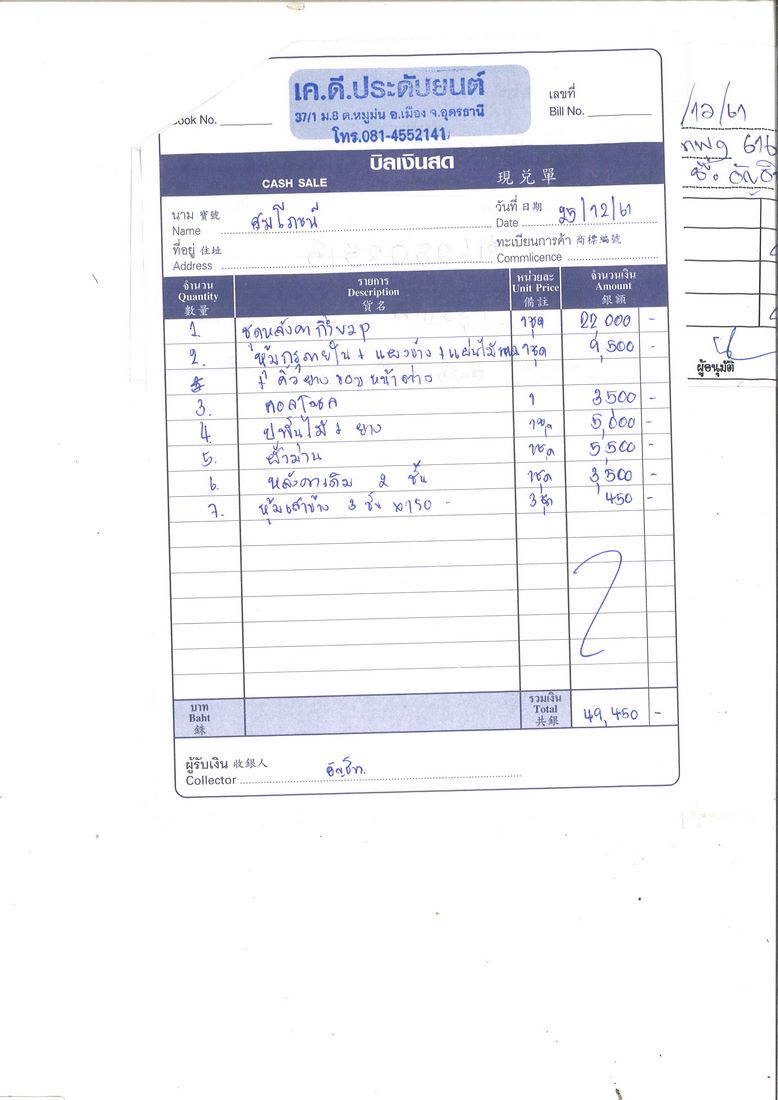 เค.ดี.ประดับยนต์
37/1 ม.8 ต.หมูม่น อ.เมือง จ.อุดรธานี
โทร.081-4552141
เลขที่
ook No.
Bill No.
บิลเงินสด
CASH SALE 現兌單
นาม 寶號
Name
วันที่ 日期
Date 25/12/61
ที่อยู่ 住址
Address
ทะเบียนการค้า 商標編號
Commlicence
จำนวน Quantity 數量
รายการ Description 貨名
หน่วยละ Unit Price 備註
จำนวนเงิน Amount 銀額
1. ชุดหลังคา 1ชุด 22,000 -
2. หุ้ม ภายใน + แผงข้าง + แผ่นไม้ 1ชุด 9,500 -
+ คิ้วยางขอบหน้าต่าง
3. คอนโซล 1 3500 -
4. ปูพื้นไม้ + ยาง 1ชุด 5,000 -
5. ผ้าม่าน 1ชุด 5,500 -
6. หลังคาเดิม 2 ชั้น 1ชุด 3,500 -
7. หุ้มเสาข้าง 3 ชิ้น x150 - 3 ชุด 450 -
บาท Baht 銖
รวมเงิน Total 共銀
49,450 -
ผู้รับเงิน 收銀人
Collector
/12/61
616
ผู้อนุมัติ